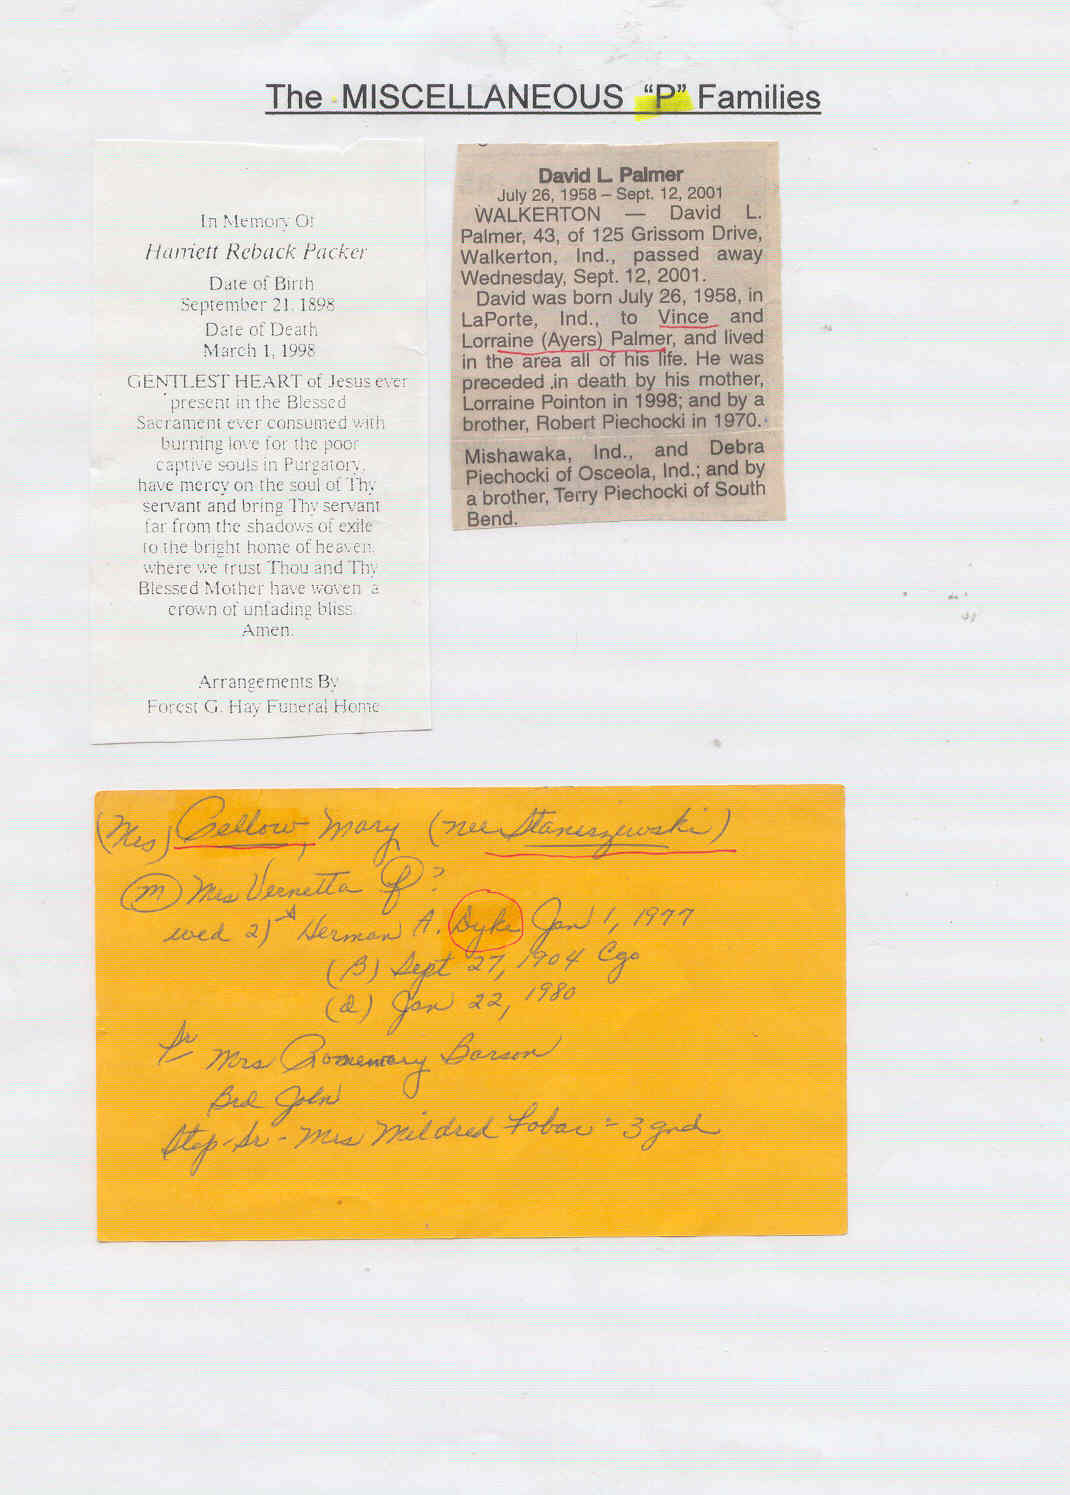 The MISCELLANEOUS "P" Families
In Memory Of
Harriett Reback Packer
Date of Birth
September 21, 1898
Date of Death
March 1, 1998
GENTLEST HEART of Jesus ever
present in the Blessed
Sacrament ever consumed with
burning love for the poor
captive souls in Purgatory,
have mercy on the soul of Thy
servant and bring Thy servant
far from the shadows of exile
to the bright home of heaven,
where we trust Thou and Thy
Blessed Mother have woven a
crown of unfading bliss.
Amen.
Arrangements By
Forest G. Hay Funeral Home
David L. Palmer
July 26, 1958 – Sept. 12, 2001
WALKERTON — David L.
Palmer, 43, of 125 Grissom Drive,
Walkerton, Ind., passed away
Wednesday, Sept. 12, 2001.
David was born July 26, 1958, in
LaPorte, Ind., to Vince and
Lorraine (Ayers) Palmer, and lived
in the area all of his life. He was
preceded in death by his mother,
Lorraine Pointon in 1998; and by a
brother, Robert Piechocki in 1970.
Mishawaka, Ind., and Debra
Piechocki of Osceola, Ind.; and by
a brother, Terry Piechocki of South
Bend.
(Mrs) Pellow, Mary (nee Staniszewski)
(m) Mrs Vernetta P?
wed 2) Herman A. Dyke Jan 1, 1977
(B) Sept 27, 1904 Cgo
(d) Jan 22, 1980
Sr Mrs Rosemary Barson
Bro John
Step-Sr - Mrs Mildred - 3 gnd